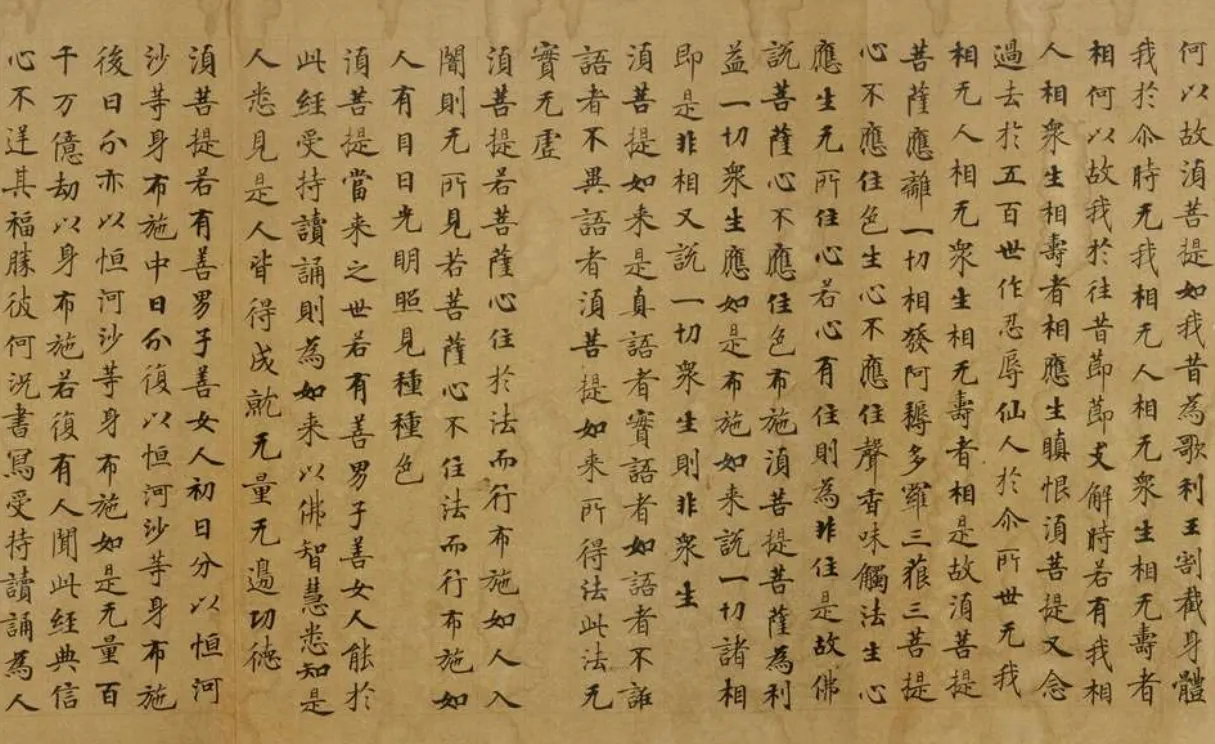 何以故湏菩提如我昔為歌利王割截身體
我於尒時无我相无人相无衆生相无壽者
相何以故我於往昔節節支解時若有我相
人相衆生相壽者相應生瞋恨湏菩提又念
過去於五百世作忍辱仙人於尒所世无我
相无人相无衆生相无壽者相是故湏菩提
菩薩應離一切相發阿耨多羅三藐三菩提
心不應住色生心不應住聲香味觸法生心
應生无所住心若心有住則為非住是故佛
說菩薩心不應住色布施湏菩提菩薩為利
益一切衆生應如是布施如来說一切諸相
即是非相又說一切衆生則非衆生
湏菩提如来是真語者實語者如語者不誑
語者不異語者湏菩提如来所得法此法无
實无虛
湏菩提若菩薩心住於法而行布施如人入
闇則无所見若菩薩心不住法而行布施如
人有目日光明照見種種色
湏菩提當来之世若有善男子善女人能於
此經受持讀誦則為如来以佛智慧悉知是
人悉見是人皆得成就无量无邊功德
湏菩提若有善男子善女人初日分以恒河
沙等身布施中日分復以恒河沙等身布施
後日分亦以恒河沙等身布施如是无量百
千万億劫以身布施若復有人聞此經典信
心不逆其福勝彼何況書寫受持讀誦為人